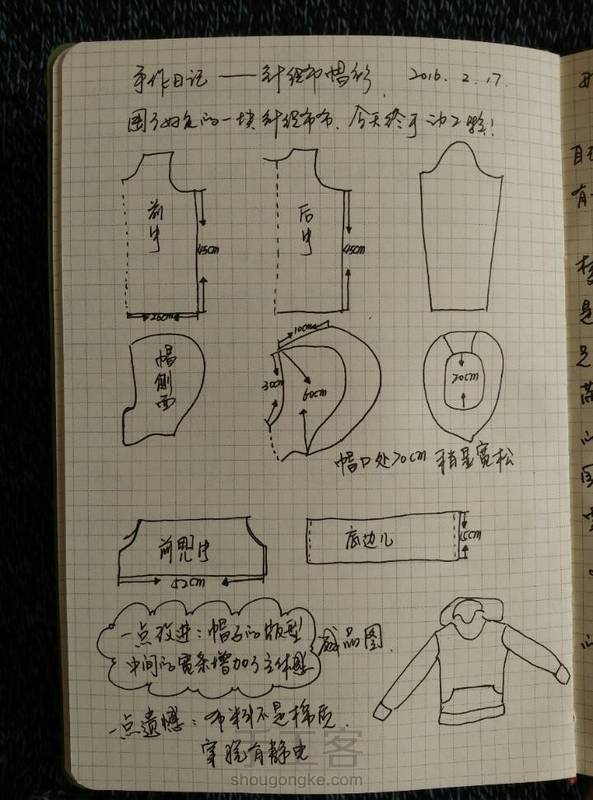 手作日记——针织布帽衫 2016.2.17.
囤了好久的一块针织布布、今天终于动工啦！
前片
45cm
26cm
后片
45cm
帽侧面
10cm
30cm
60cm
70cm
帽口处70cm 稍显宽松
前兜片
42cm
底边儿
15cm
一点改进：帽子的版型
中间的宽条增加了立体感
成品图.
一点遗憾：布料不是棉质.
穿脱有静电
手工客
shougongke.com